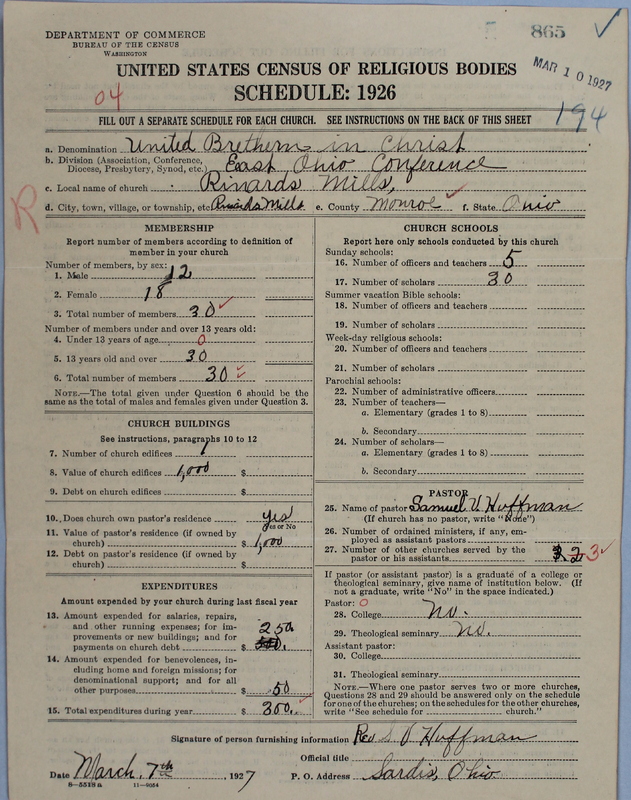 DEPARTMENT OF COMMERCE
BUREAU OF THE CENSUS
WASHINGTON
865
MAR 10 1927
UNITED STATES CENSUS OF RELIGIOUS BODIES
SCHEDULE: 1926
04
194
FILL OUT A SEPARATE SCHEDULE FOR EACH CHURCH. SEE INSTRUCTIONS ON THE BACK OF THIS SHEET
a. Denomination United Brethern in Christ
b. Division (Association, Conference, Diocese, Presbytery, Synod, etc.) East Ohio Conference
c. Local name of church Rinards Mills,
R
d. City, town, village, or township, etc Rinards Mills e. County Monroe f. State Ohio
MEMBERSHIP
Report number of members according to definition of
member in your church
Number of members, by sex:
1. Male 12
2. Female 18
3. Total number of members 30
Number of members under and over 13 years old:
4. Under 13 years of age 0
5. 13 years old and over 30
6. Total number of members 30
NOTE.—The total given under Question 6 should be
same as the total of males and females given under Question 3.
CHURCH BUILDINGS
See instructions, paragraphs 10 to 12
7. Number of church edifices 1
8. Value of church edifices 1,000 $
9. Debt on church edifices $
10. Does church own pastor's residence yes
Yes or No
11. Value of pastor's residence (if owned by
church) $ 1,000
12. Debt on pastor's residence (if owned by
church) $
EXPENDITURES
Amount expended by your church during last fiscal year
13. Amount expended for salaries, repairs,
and other running expenses; for im-
provements or new buildings; and for
payments on church debt $ 250
14. Amount expended for benevolences, in-
cluding home and foreign missions; for
denominational support; and for all
other purposes $ 50
15. Total expenditures during year $ 300.
CHURCH SCHOOLS
Report here only schools conducted by this church
Sunday schools:
16. Number of officers and teachers 5
17. Number of scholars 30
Summer vacation Bible schools:
18. Number of officers and teachers
19. Number of scholars
Week-day religious schools:
20. Number of officers and teachers
21. Number of scholars
Parochial schools:
22. Number of administrative officers
23. Number of teachers—
a. Elementary (grades 1 to 8)
b. Secondary
24. Number of scholars—
a. Elementary (grades 1 to 8)
b. Secondary
PASTOR
25. Name of pastor Samuel V Huffman
(If church has no pastor, write "None")
26. Number of ordained ministers, if any, em-
ployed as assistant pastors
27. Number of other churches served by the
pastor or his assistants 2 3
If pastor (or assistant pastor) is a graduate of a college or
theological seminary, give name of institution below. (If
not a graduate, write "No" in the space indicated.)
Pastor: 0
28. College No.
29. Theological seminary No.
Assistant pastor:
30. College
31. Theological seminary
NOTE.—Where one pastor serves two or more churches,
Questions 28 and 29 should be answered only on the schedule
for one of the churches; on the schedules for the other churches,
write "See schedule for church."
Signature of person furnishing information Rev S V Huffman
Official title
Date March, 7th 1927 P. O. Address Sardis, Ohio
8—5518a 11—9054